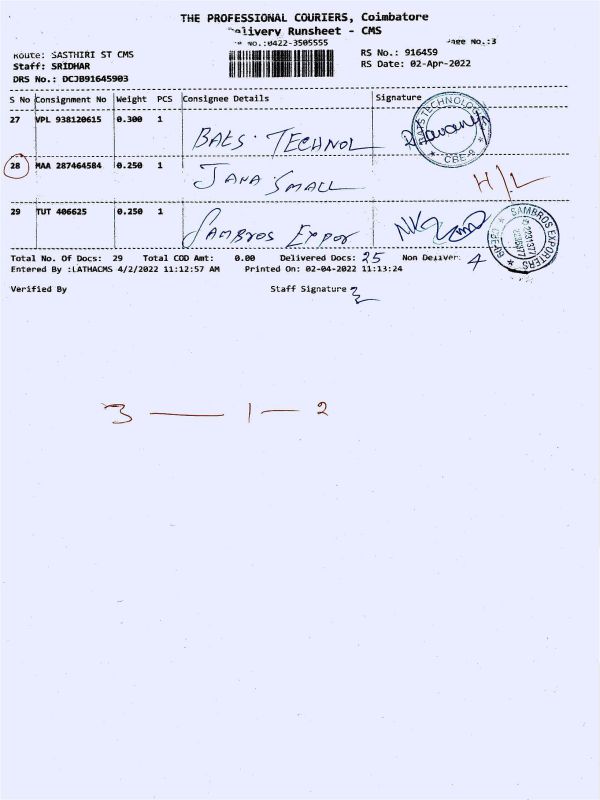 THE PROFESSIONAL COURIERS, Coimbatore
Delivery Runsheet - CMS
No.:0422-3505555
Page No.:3
Route: SASTHIRI ST CMS
RS No.: 916459
Staff: SRIDHAR
RS Date: 02-Apr-2022
DRS No.: DCJB91645903
S No Consignment No Weight PCS Consignee Details Signature
27 VPL 938120615 0.300 1 BATS. TECHNOL
28 MAA 287464584 0.250 1 JANA SMALL H/L
29 TUT 406625 0.250 1 SAMBROS EXPOR
SAMBROS EXPORTERS
Total No. Of Docs: 29 Total COD Amt: 0.00 Delivered Docs: 25 Non Deliver: 4
Entered By :LATHACMS 4/2/2022 11:12:57 AM Printed On: 02-04-2022 11:13:24
Verified By Staff Signature
3 — 1 — 2